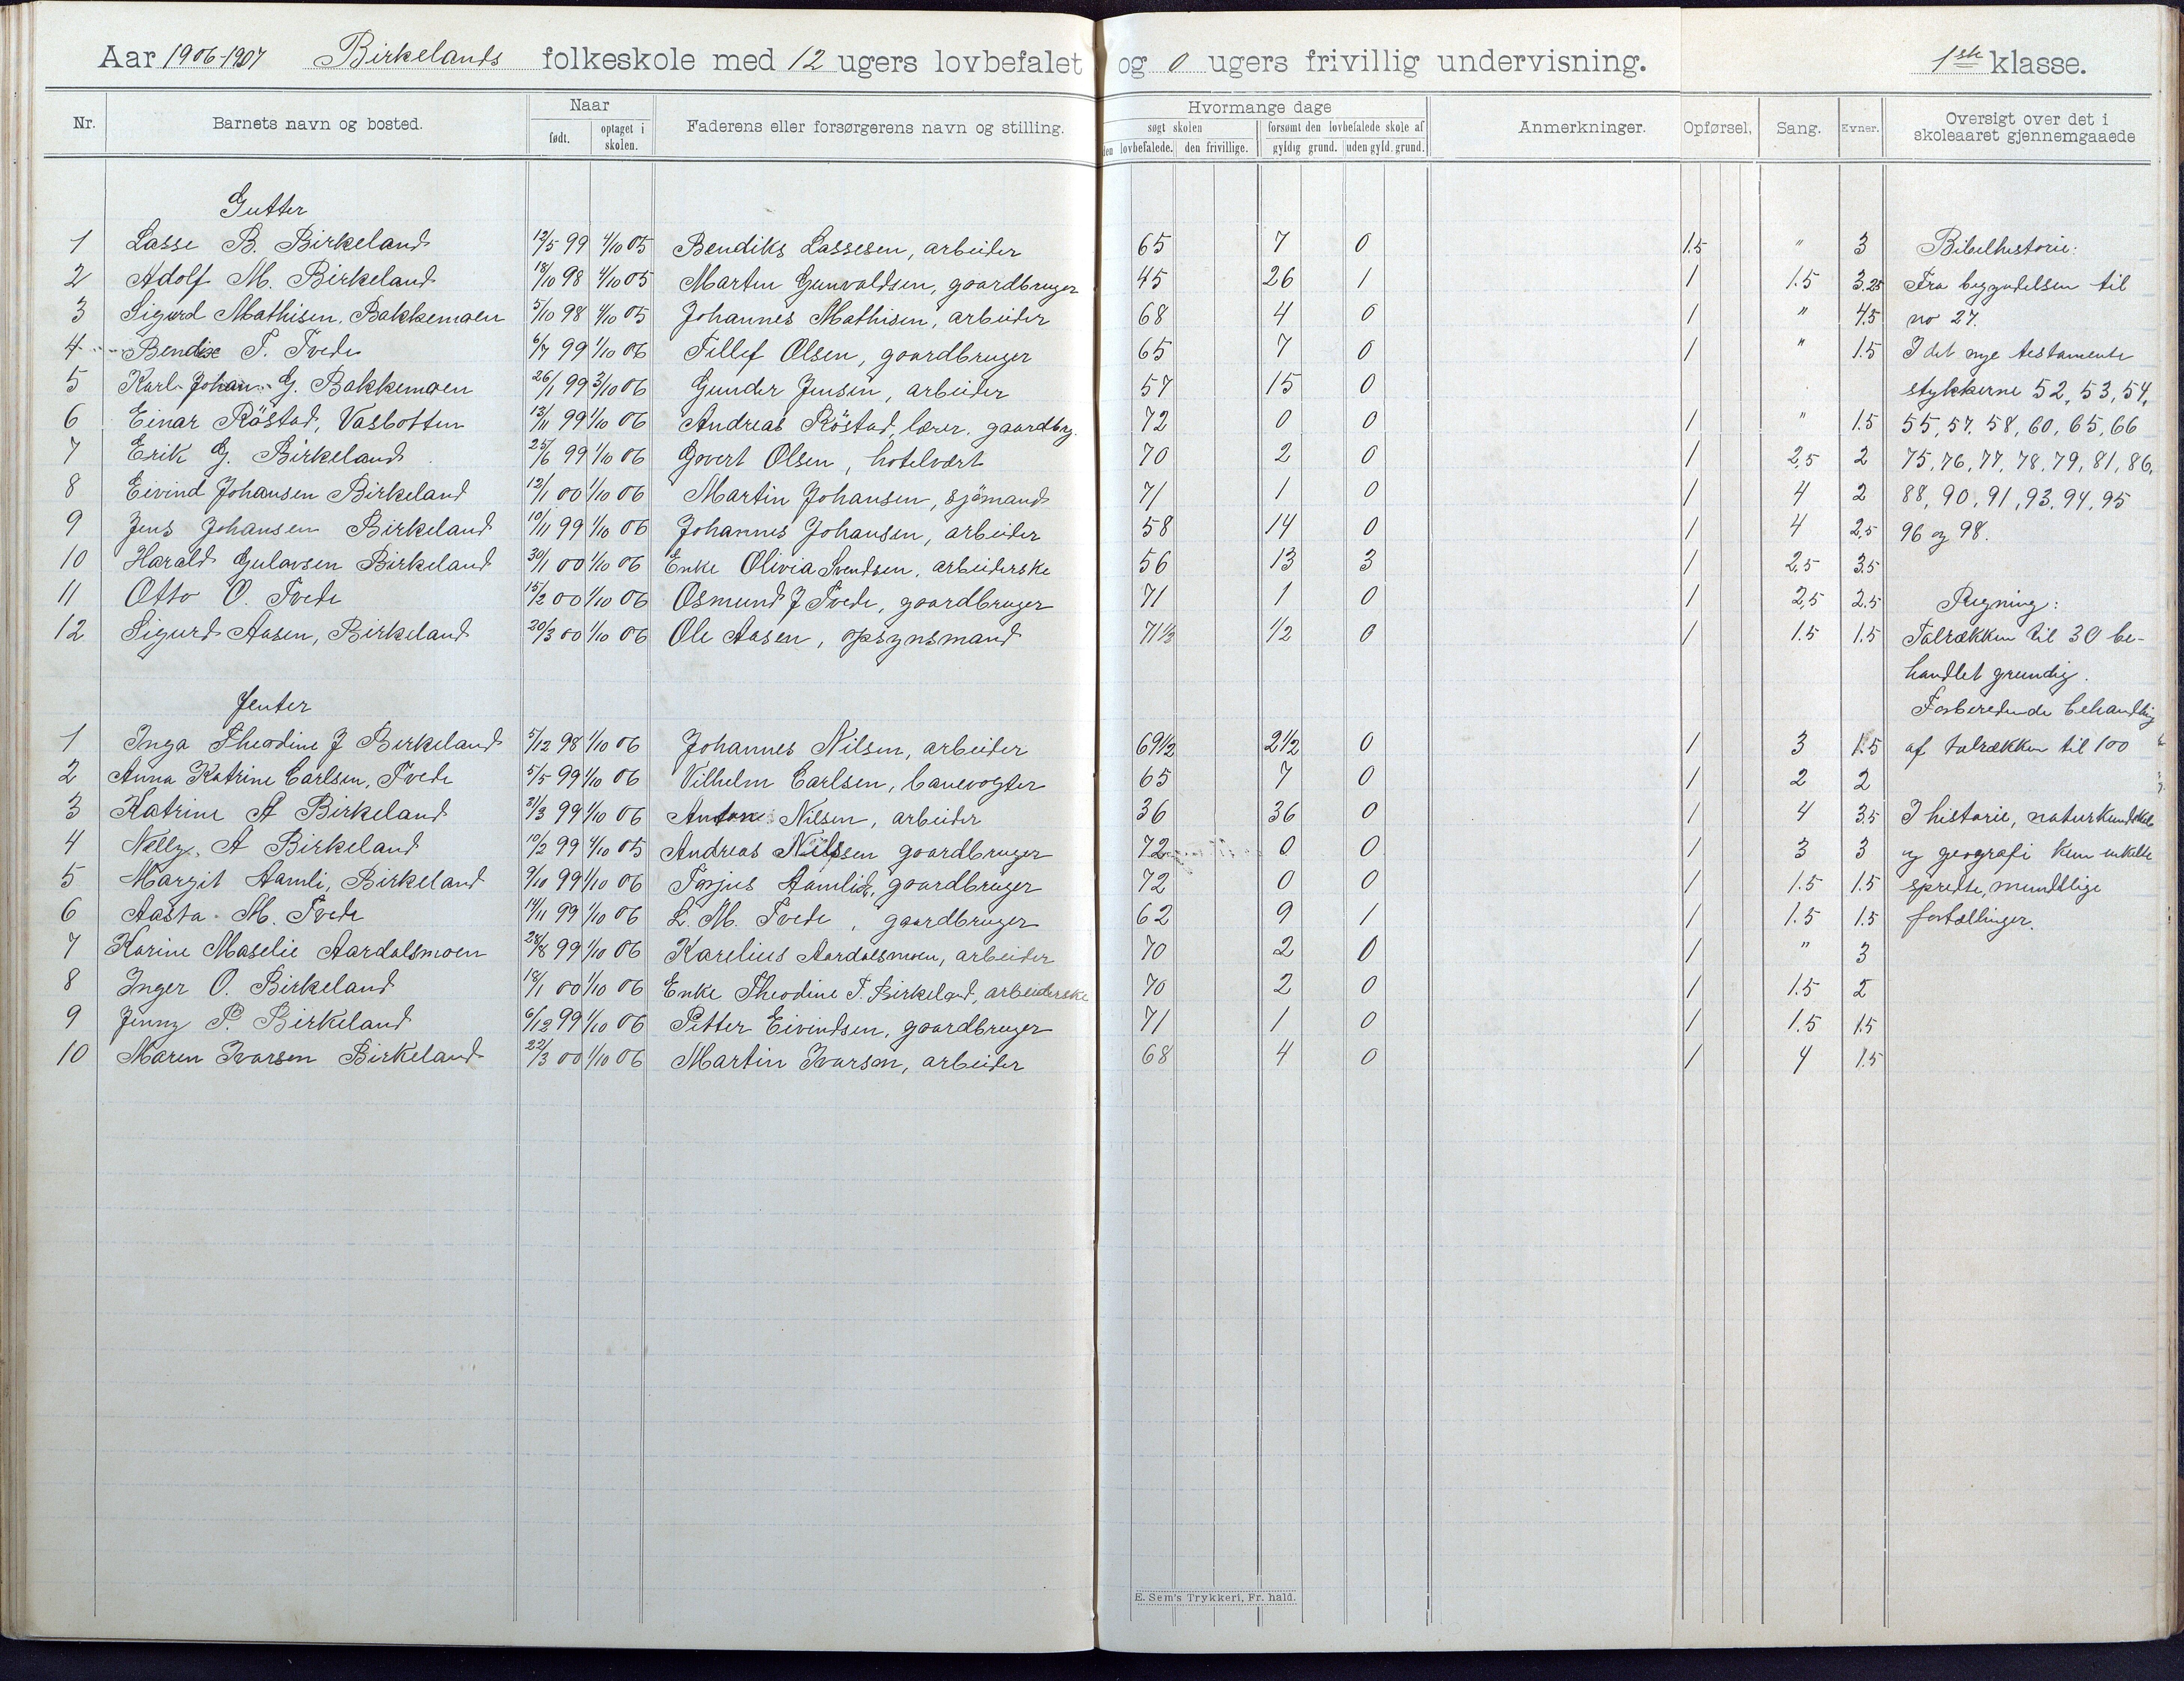 Aar 1906-1907 Birkelands folkeskole med 12 ugers lovbefalet og 0 ugers frivillig undervisning. 1ste klasse.
Nr. Barnets navn og bosted. Naar født. optaget i skolen. Faderens eller forsørgerens navn og stilling. Hvormange dage søgt skolen den lovbefalede. den frivillige. forsømt den lovbefalede skole af gyldig grund. uden gyld. grund. Anmerkninger. Opførsel. Sang. Evner. Oversigt over det i skoleaaret gjennemgaaede
Gutter
1 Lasse B. Birkeland 12/5 99 4/10 05 Bendiks Lassesen, arbeider 65 7 0 1.5 " 3 Bibelhistorie:
2 Adolf M. Birkeland 18/10 98 4/10 05 Martin Gunvaldsen, gaardbruger 45 26 1 1 1.5 3.25 Fra begyndelsen til
3 Sigurd Mathisen, Bakkemoen 5/10 98 4/10 05 Johannes Mathisen, arbeider 68 4 0 1 " 4.5 no 27.
4 Bendix T. Tvede 6/7 99 1/10 06 Tellef Olsen, gaardbruger 65 7 0 1 " 1.5 I det nye testamente
5 Karl Johan G. Bakkemoen 26/1 99 3/10 06 Gunder Jensen, arbeider 57 15 0 stykkerne 52, 53, 54,
6 Einar Röstad, Vasbotten 13/11 99 1/10 06 Andreas Röstad, lærer. gaardbrg. 72 0 0 1 " 1.5 55, 57. 58, 60, 65, 66
7 Erik G. Birkeland 25/6 99 1/10 06 Govert Olsen, hotelvært 70 2 0 1 2,5 2 75, 76, 77, 78, 79, 81, 86,
8 Eivind Johansen Birkeland 12/1 00 1/10 06 Martin Johansen, sjömand 71 1 0 1 4 2 88, 90, 91, 93, 94, 95
9 Jens Johansen Birkeland 10/11 99 1/10 06 Johannes Johansen, arbeider 58 14 0 1 4 2,5 96 og 98.
10 Harald Gulavsen Birkeland 30/1 00 1/10 06 Enke Olivia Svendsen, arbeiderske 56 13 3 1 2,5 3.5
11 Otto O. Tvede 15/2 00 1/10 06 Osmund J Tvede, gaardbruger 71 1 0 1 2,5 2.5 Regning:
12 Sigurd Aasen, Birkeland 20/3 00 1/10 06 Ole Aasen, opsynsmand 71 1/2 1/2 0 1 1.5 1.5 Talrækken til 30 be-
handlet grundig.
Jenter Forberedende behandling
1 Inga Theodine J Birkeland 5/12 98 1/10 06 Johannes Nilsen, arbeider 69 1/2 2 1/2 0 1 3 1.5 af talrækken til 100
2 Anna Katrine Carlsen, Tvede 5/5 99 1/10 06 Vilhelm Carlsen, banevogter 65 7 0 1 2 2
3 Katrine A Birkeland 31/3 99 1/10 06 Anton Nilsen, arbeider 36 36 0 1 4 3.5 I historie, naturkundskab
4 Nelly A Birkeland 10/2 99 4/10 05 Andreas Nilssen gaardbruger 72 0 0 1 3 3 og geografi kun enkelte
5 Margit Aamli, Birkeland 9/10 99 1/10 06 Torjus Aamlid, gaardbruger 72 0 0 1 1.5 1.5 spredte, mundtlige
6 Aasta M. Tvede 14/11 99 1/10 06 L. M. Tvede, gaardbruger 62 9 1 1 1.5 1.5 fortællinger.
7 Karine Maselie Aardalsmoen 28/8 99 1/10 06 Karelius Aardalsmoen, arbeider 70 2 0 1 " 3
8 Inger O. Birkeland 18/1 00 1/10 06 Enke Theodine T. Birkeland, arbeiderske 70 2 0 1 1.5 2
9 Jenny P. Birkeland 6/12 99 1/10 06 Petter Eivindsen, gaardbruger 71 1 0 1 1.5 1.5
10 Maren Ivarsen Birkeland 22/3 00 1/10 06 Martin Ivarsen, arbeider 68 4 0 1 4 1.5
E. Sem's Trykkeri, Fr. hald.